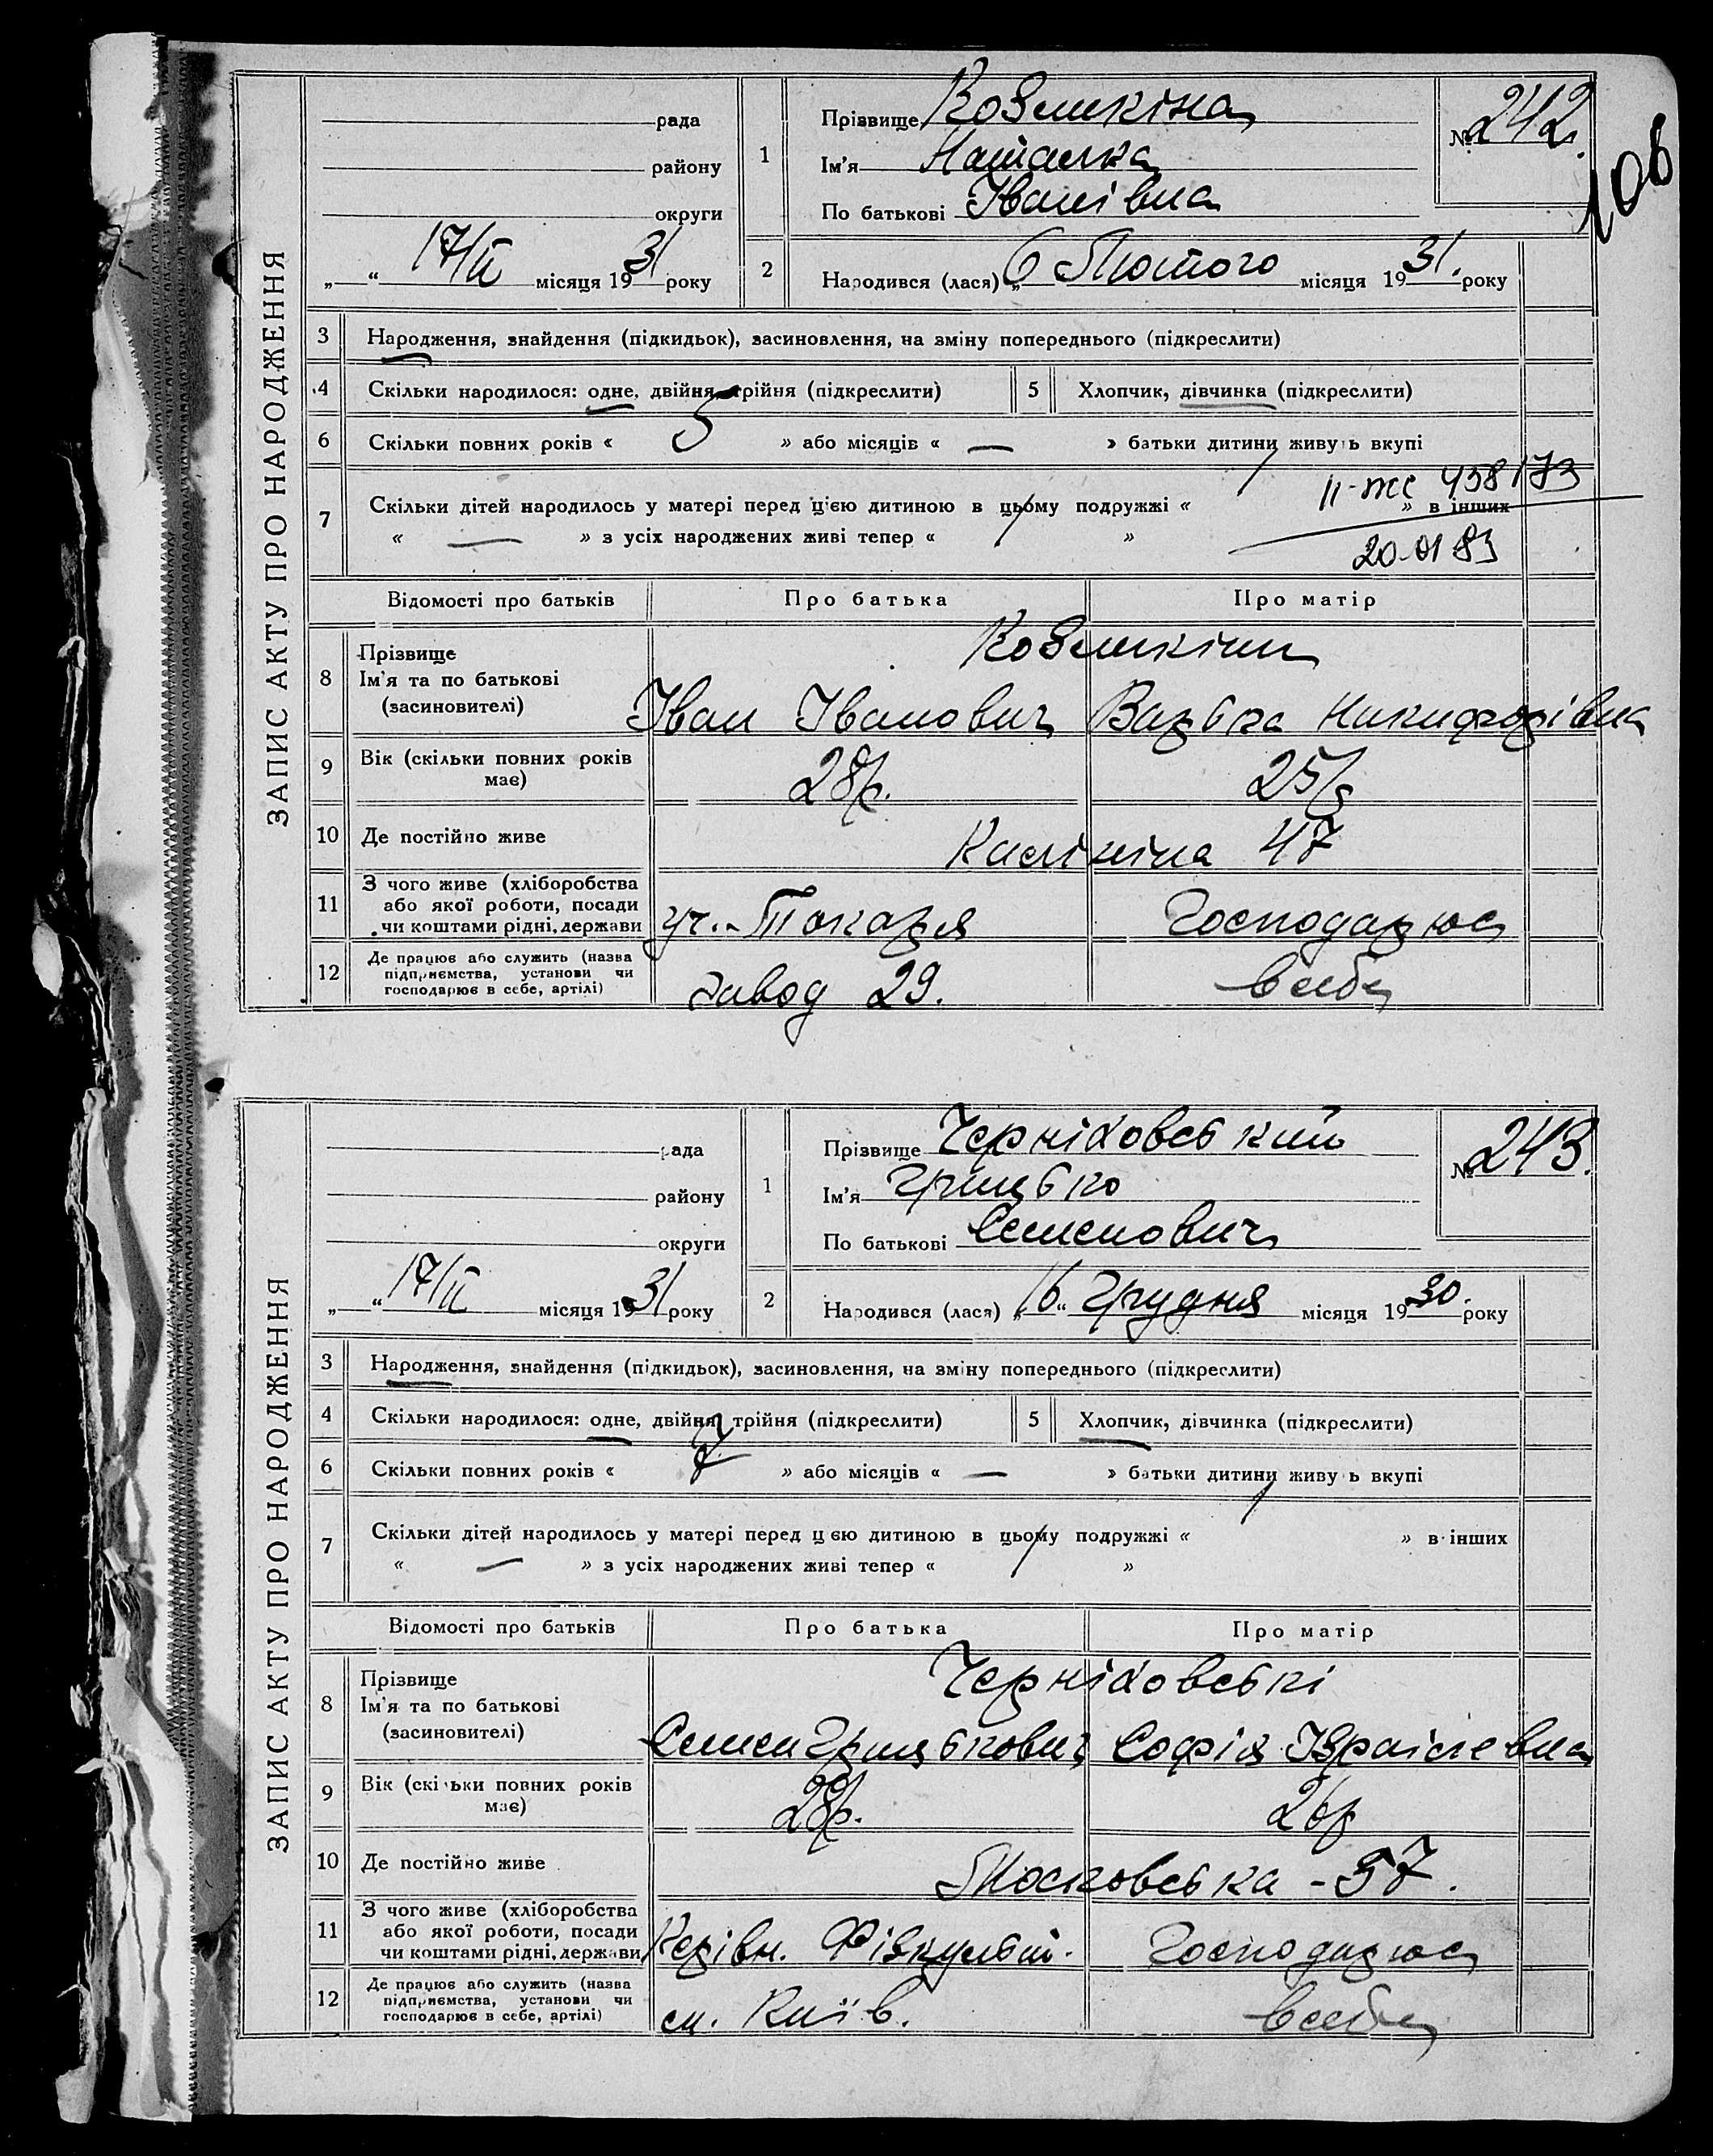 ЗАПИС АКТУ ПРО НАРОДЖЕННЯ
рада
району
округи
17/II місяця 1931 року
1
Прізвище Коземкіна
Ім'я Наталка
По батькові Іванівна
№ 242.
108
2
Народився (лася) „6 Лютого місяця 1931. року
3 Народження, знайдення (підкидьок), засиновлення, на зміну попереднього (підкреслити)
4 Скільки народилося: одне, двійня, трійня (підкреслити)
5 Хлопчик, дівчинка (підкреслити)
6 Скільки повних років « 5 » або місяців « — » батьки дитини живуть вкупі
II-ЖС 458173
7 Скільки дітей народилось у матері перед цією дитиною в цьому подружжі « / » в інших
« — » з усіх народжених живі тепер « / »
20-01 83
Відомості про батьків Про батька Про матір
8 Прізвище
Ім'я та по батькові
(засиновителі)
Коземкіни
Іван Іванович Варька Никифорівна
9 Вік (скільки повних років має) 28/р. 25/р
10 Де постійно живе Калініна 47
11 З чого живе (хліборобства
або якої роботи, посади
чи коштами рідні, держави
уч.-Токаря Господарює
12 Де працює або служить (назва
підприємства, установи чи
господарює в себе, артілі)
завод 29. в себе
ЗАПИС АКТУ ПРО НАРОДЖЕННЯ
рада
району
округи
„ “ 17/II місяця 1931 року
1
Прізвище Черніховський
Ім'я Грицько
По батькові Семенович
№ 243.
2
Народився (лася) „16“ Грудня місяця 1930. року
3 Народження, знайдення (підкидьок), засиновлення, на зміну попереднього (підкреслити)
4 Скільки народилося: одне, двійня, трійня (підкреслити)
5 Хлопчик, дівчинка (підкреслити)
6 Скільки повних років « 7 » або місяців « — » батьки дитини живуть вкупі
7 Скільки дітей народилось у матері перед цією дитиною в цьому подружжі « / » в інших
« — » з усіх народжених живі тепер « / »
Відомості про батьків Про батька Про матір
8 Прізвище
Ім'я та по батькові
(засиновителі)
Черніховські
Семен Грицькович Софія Ізраілевна
9 Вік (скільки повних років має) 28/р. 26р
10 Де постійно живе Московська - 57.
11 З чого живе (хліборобства
або якої роботи, посади
чи коштами рідні, держави
Керівн. Фізкульт. Господарює
12 Де працює або служить (назва
підприємства, установи чи
господарює в себе, артілі)
ст. Київ. в себе